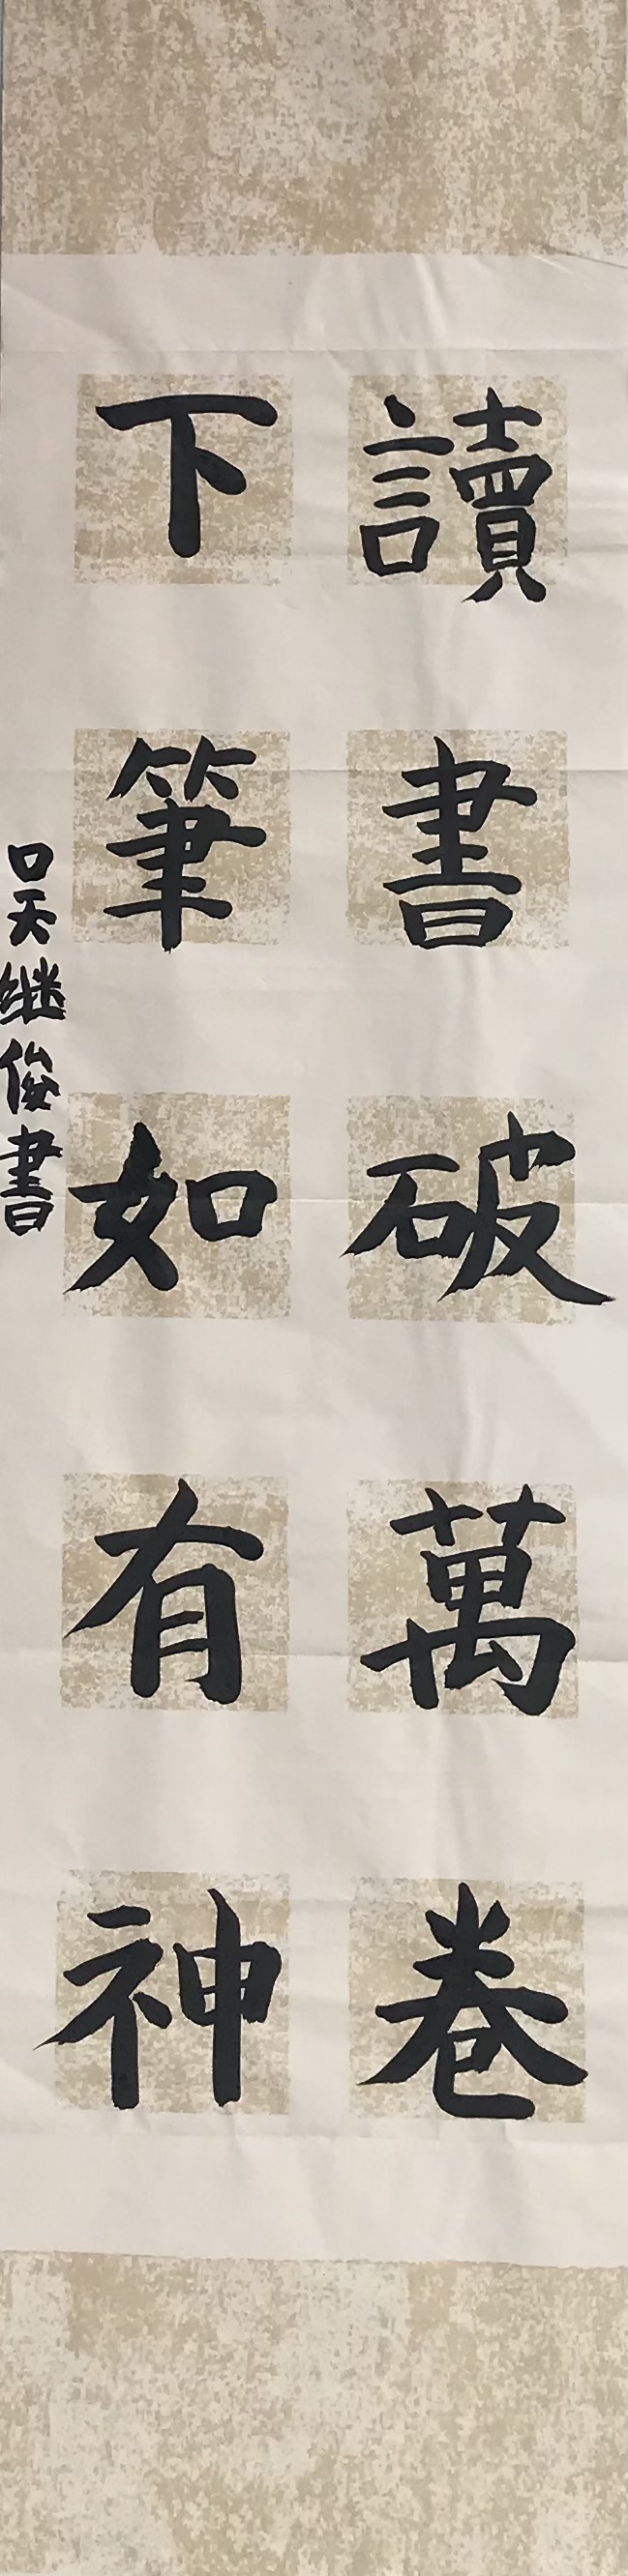 讀書破萬卷
下筆如有神
吴继俊書